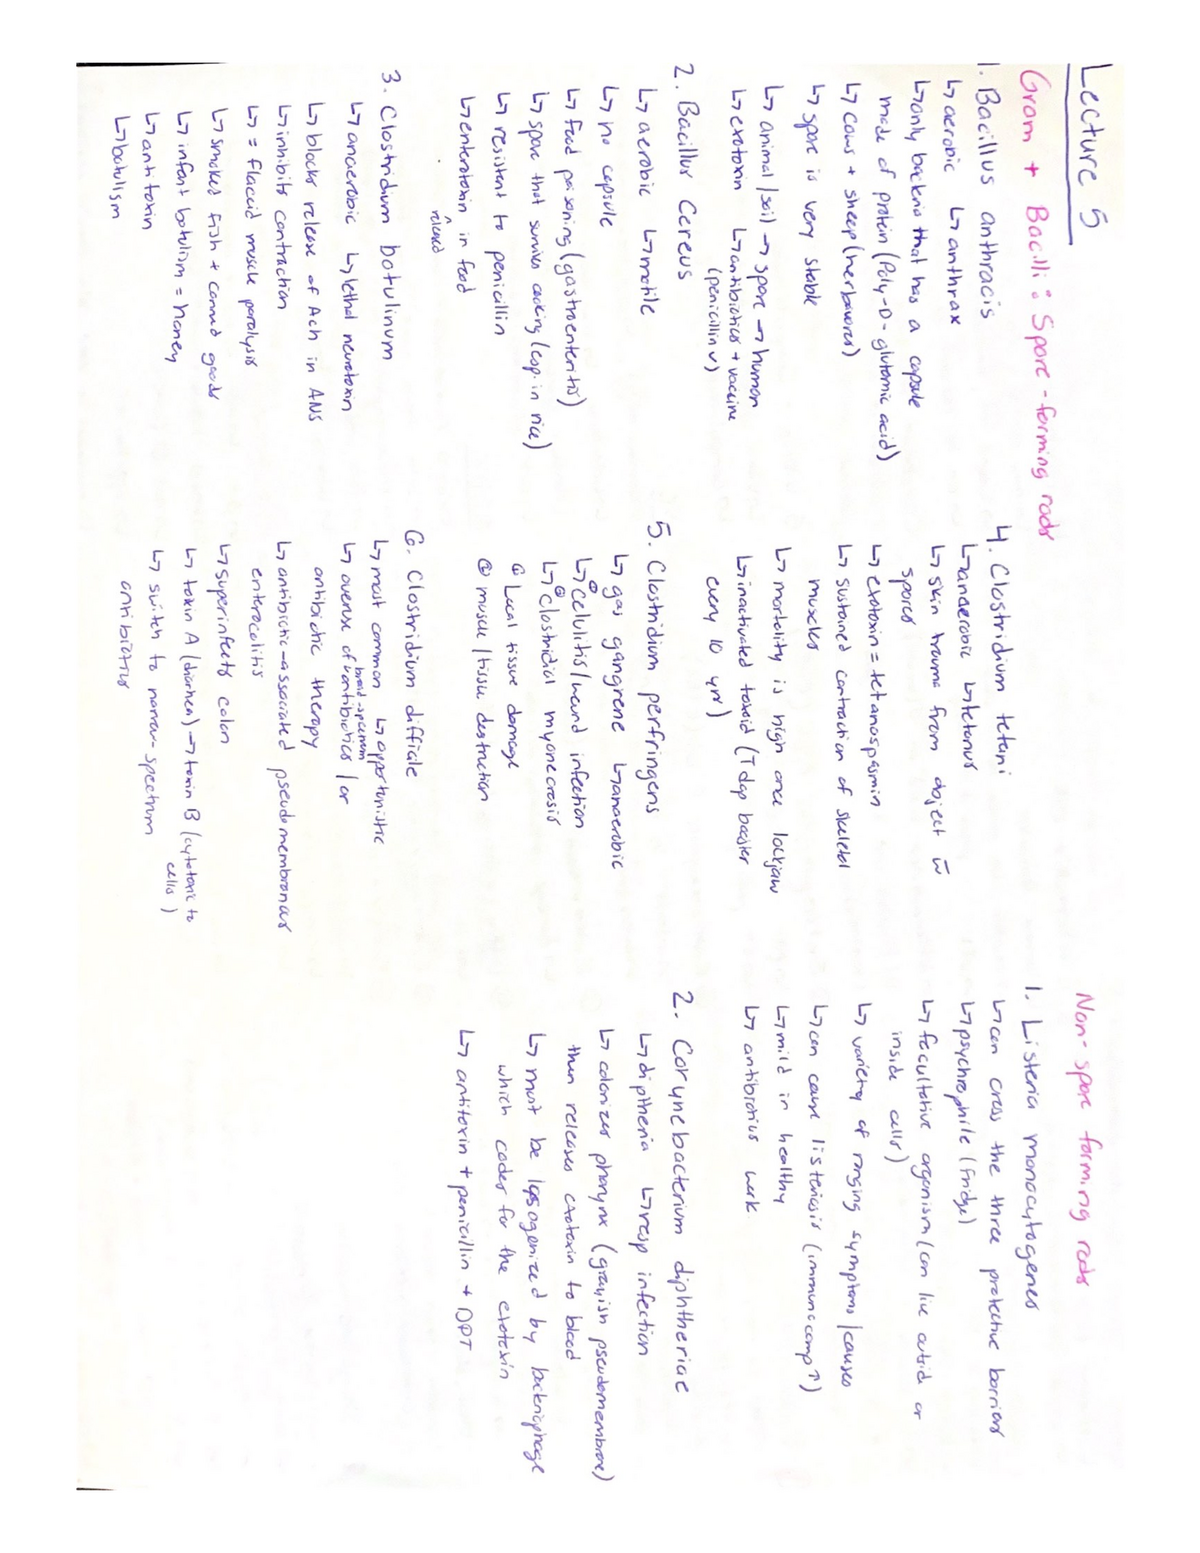 Lecture 5
Gram + Bacilli : Spore-forming rods
1. Bacillus anthracis
↳ aerobic ↳ anthrax
↳ only bacteria that has a capsule
made of protein (Poly-D-glutamic acid)
↳ cows + sheep (herbavores)
↳ spore is very stable
↳ animal/soil → spore → human
↳ exotoxin ↳ antibiotics + vaccine
(penicillin v)
2. Bacillus Cereus
↳ aerobic ↳ motile
↳ no capsule
↳ food poisoning (gastroenteritis)
↳ spore that survives cooking (esp. in rice)
↳ resistent to penicillin
↳ enterotoxin ^ in food
released
3. Clostridium botulinum
↳ anaerobic ↳ lethal neurotoxin
↳ blocks release of Ach in ANS
↳ inhibits contraction
↳ = flaccid muscle paralysis
↳ smokes fish + canned goods
↳ infant botulism = honey
↳ antitoxin
↳ botulism
4. Clostridium tetani
↳ anaerobic ↳ tetanus
↳ skin trauma from object w̄
spores
↳ exotoxin = tetanospasmin
↳ sustained contraction of skeletal
muscles
↳ mortality is high once lockjaw
↳ inactivated toxoid (Tdap booster
every 10 yrs)
5. Clostridium perfringens
↳ gas gangrene ↳ anaerobic
↳ ① Celulitis/wound infection
↳ ② Clostridial myonecrosis
① Local tissue damage
② muscle/tissue destruction
6. Clostridium difficile
↳ most common ↳ opportunistic
broad-spectrum
↳ overuse of ^ antibiotics / or
antibiotic therapy
↳ antibiotic-associated pseudomembranas
enterocolitis
↳ superinfects colon
↳ toxin A (diarrhea) → toxin B (cytotoxic to
cells)
↳ switch to narrow-spectrum
antibiotics
Non-spore forming rods
1. Listeria monocytogenes
↳ can cross the three protective barriers
↳ psychrophile (fridge)
↳ facultative organism (can live outside or
inside cells)
↳ variety of ranging symptoms/causes
↳ can cause listeriosis (immunocomp↑)
↳ mild in healthy
↳ antibiotics work
2. Corynebacterium diphtheriae
↳ diptheria ↳ resp infection
↳ colonizes pharynx (grayish pseudomembrane)
then releases exotoxin to blood
↳ must be lysogenized by bacteriophage
which codes for the exotoxin
↳ antitoxin + penicillin + DPT